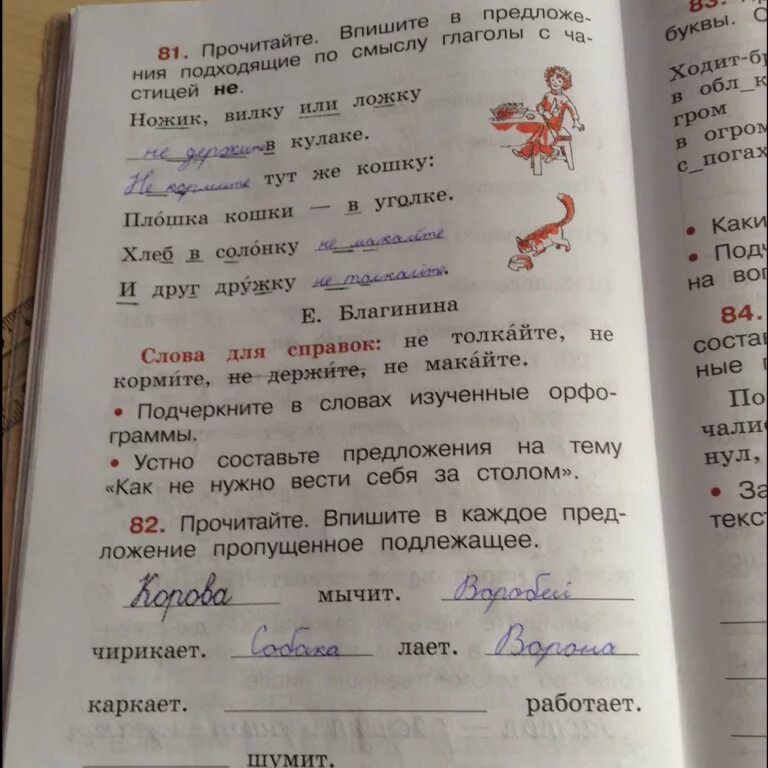 81. Прочитайте. Впишите в предложе-
ния подходящие по смыслу глаголы с ча-
стицей не.
Ножик, вилку или ложку
не держите в кулаке.
Не кормите тут же кошку:
Пло́шка кошки — в уголке.
Хлеб в соло́нку не макайте
И друг дру́жку не толкайте.
Е. Благинина
Слова для справок: не толка́йте, не
корми́те, не держи́те, не мака́йте.
• Подчеркните в словах изученные орфо-
граммы.
• Устно составьте предложения на тему
«Как не нужно вести себя за столом».
82. Прочитайте. Впишите в каждое пред-
ложение пропущенное подлежащее.
Корова мычит. Воробей
чирикает. Собака лает. Ворона
каркает. работает.
шумит.
83.
буквы. С
Ходит-бр
в обл_к
гром
в огром
с_погах
• Каки
• Подч
на воп
84.
состав
ные п
По
чалис
нул,
• За
текст